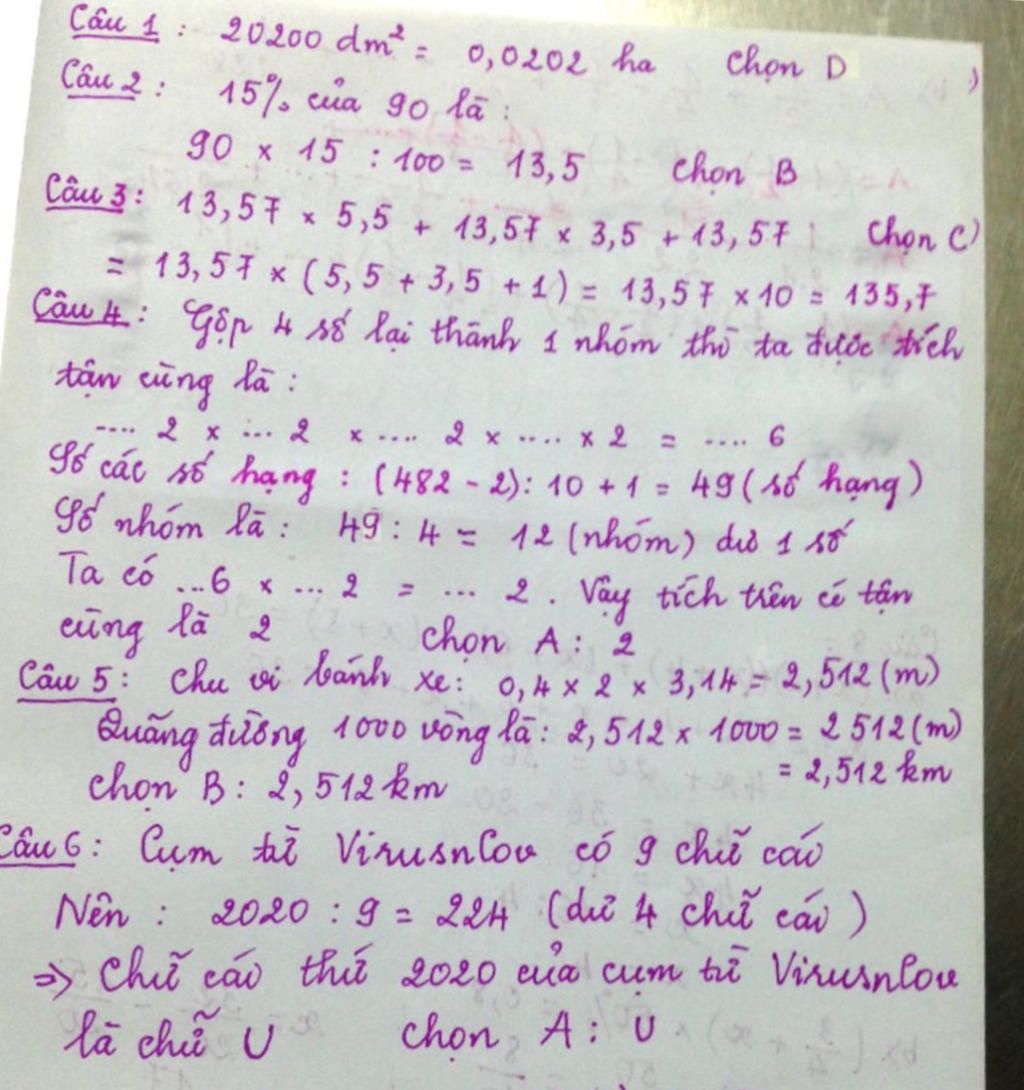 Câu 1 : 20200 dm² = 0,0202 ha chọn D
Câu 2 : 15% của 90 là :
90 × 15 : 100 = 13,5 chọn B
Câu 3 : 13,57 × 5,5 + 13,57 × 3,5 + 13,57 chọn C
= 13,57 × (5,5 + 3,5 + 1) = 13,57 × 10 = 135,7
Câu 4 : Gộp 4 số lại thành 1 nhóm thì ta được tích
tận cùng là :
.... 2 × ... 2 × .... 2 × .... × 2 = .... 6
Số các số hạng : (482 - 2) : 10 + 1 = 49 (số hạng)
Số nhóm là : 49 : 4 = 12 (nhóm) dư 1 số
Ta có ...6 × ... 2 = ... 2 . Vậy tích trên có tận
cùng là 2 chọn A : 2
Câu 5 : Chu vi bánh xe : 0,4 × 2 × 3,14 = 2,512 (m)
Quãng đường 1000 vòng là : 2,512 × 1000 = 2 512 (m)
= 2,512 km
chọn B : 2,512 km
Câu 6 : Cụm từ VirusnCov có 9 chữ cái
Nên : 2020 : 9 = 224 (dư 4 chữ cái)
=> Chữ cái thứ 2020 của cụm từ VirusnCov
là chữ U chọn A : U